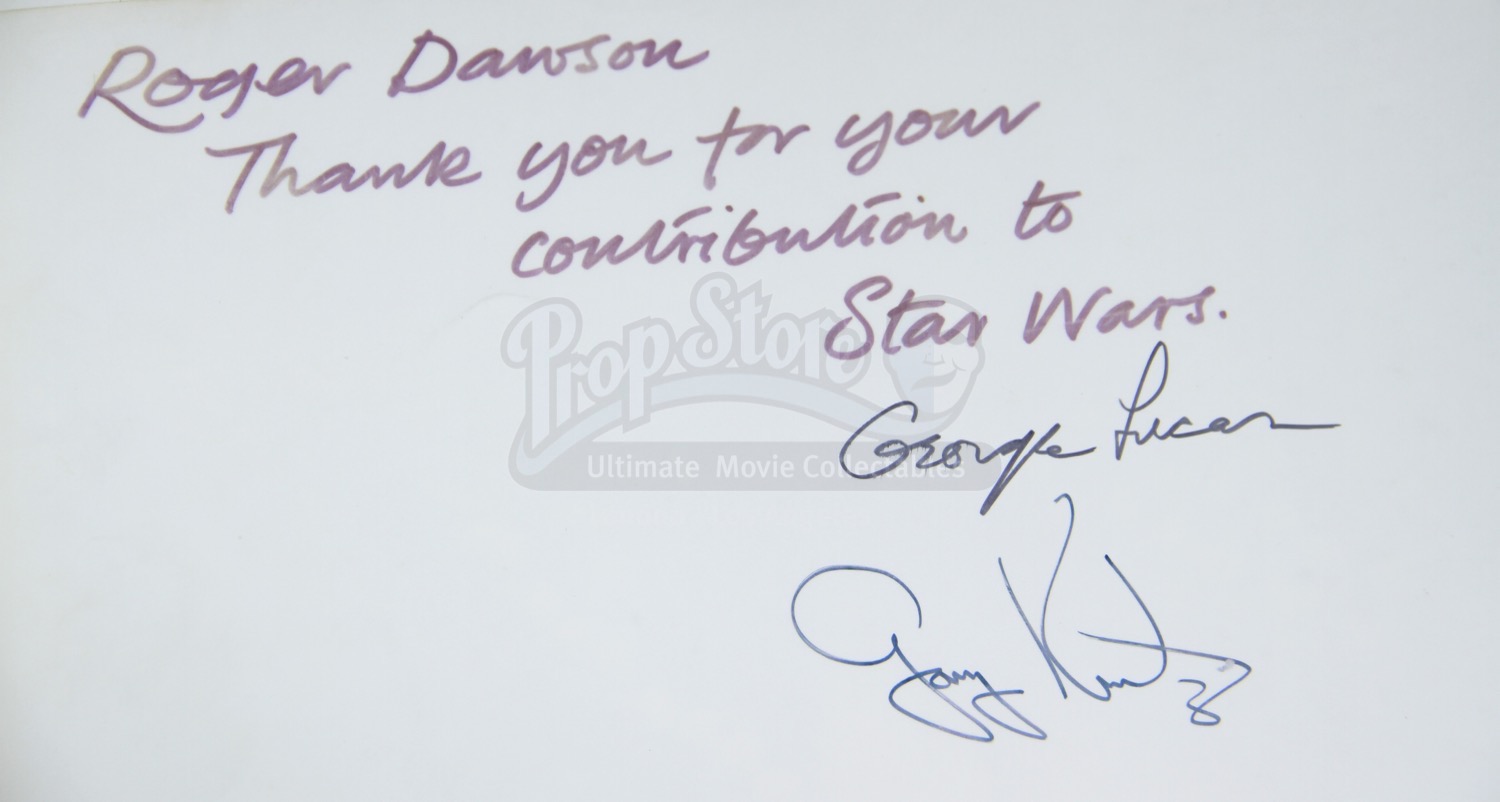 Roger Dawson
Thank you for your
contribution to
Star Wars.
PropStore
Ultimate Movie Collectables
George Lucas
Gary Kurtz